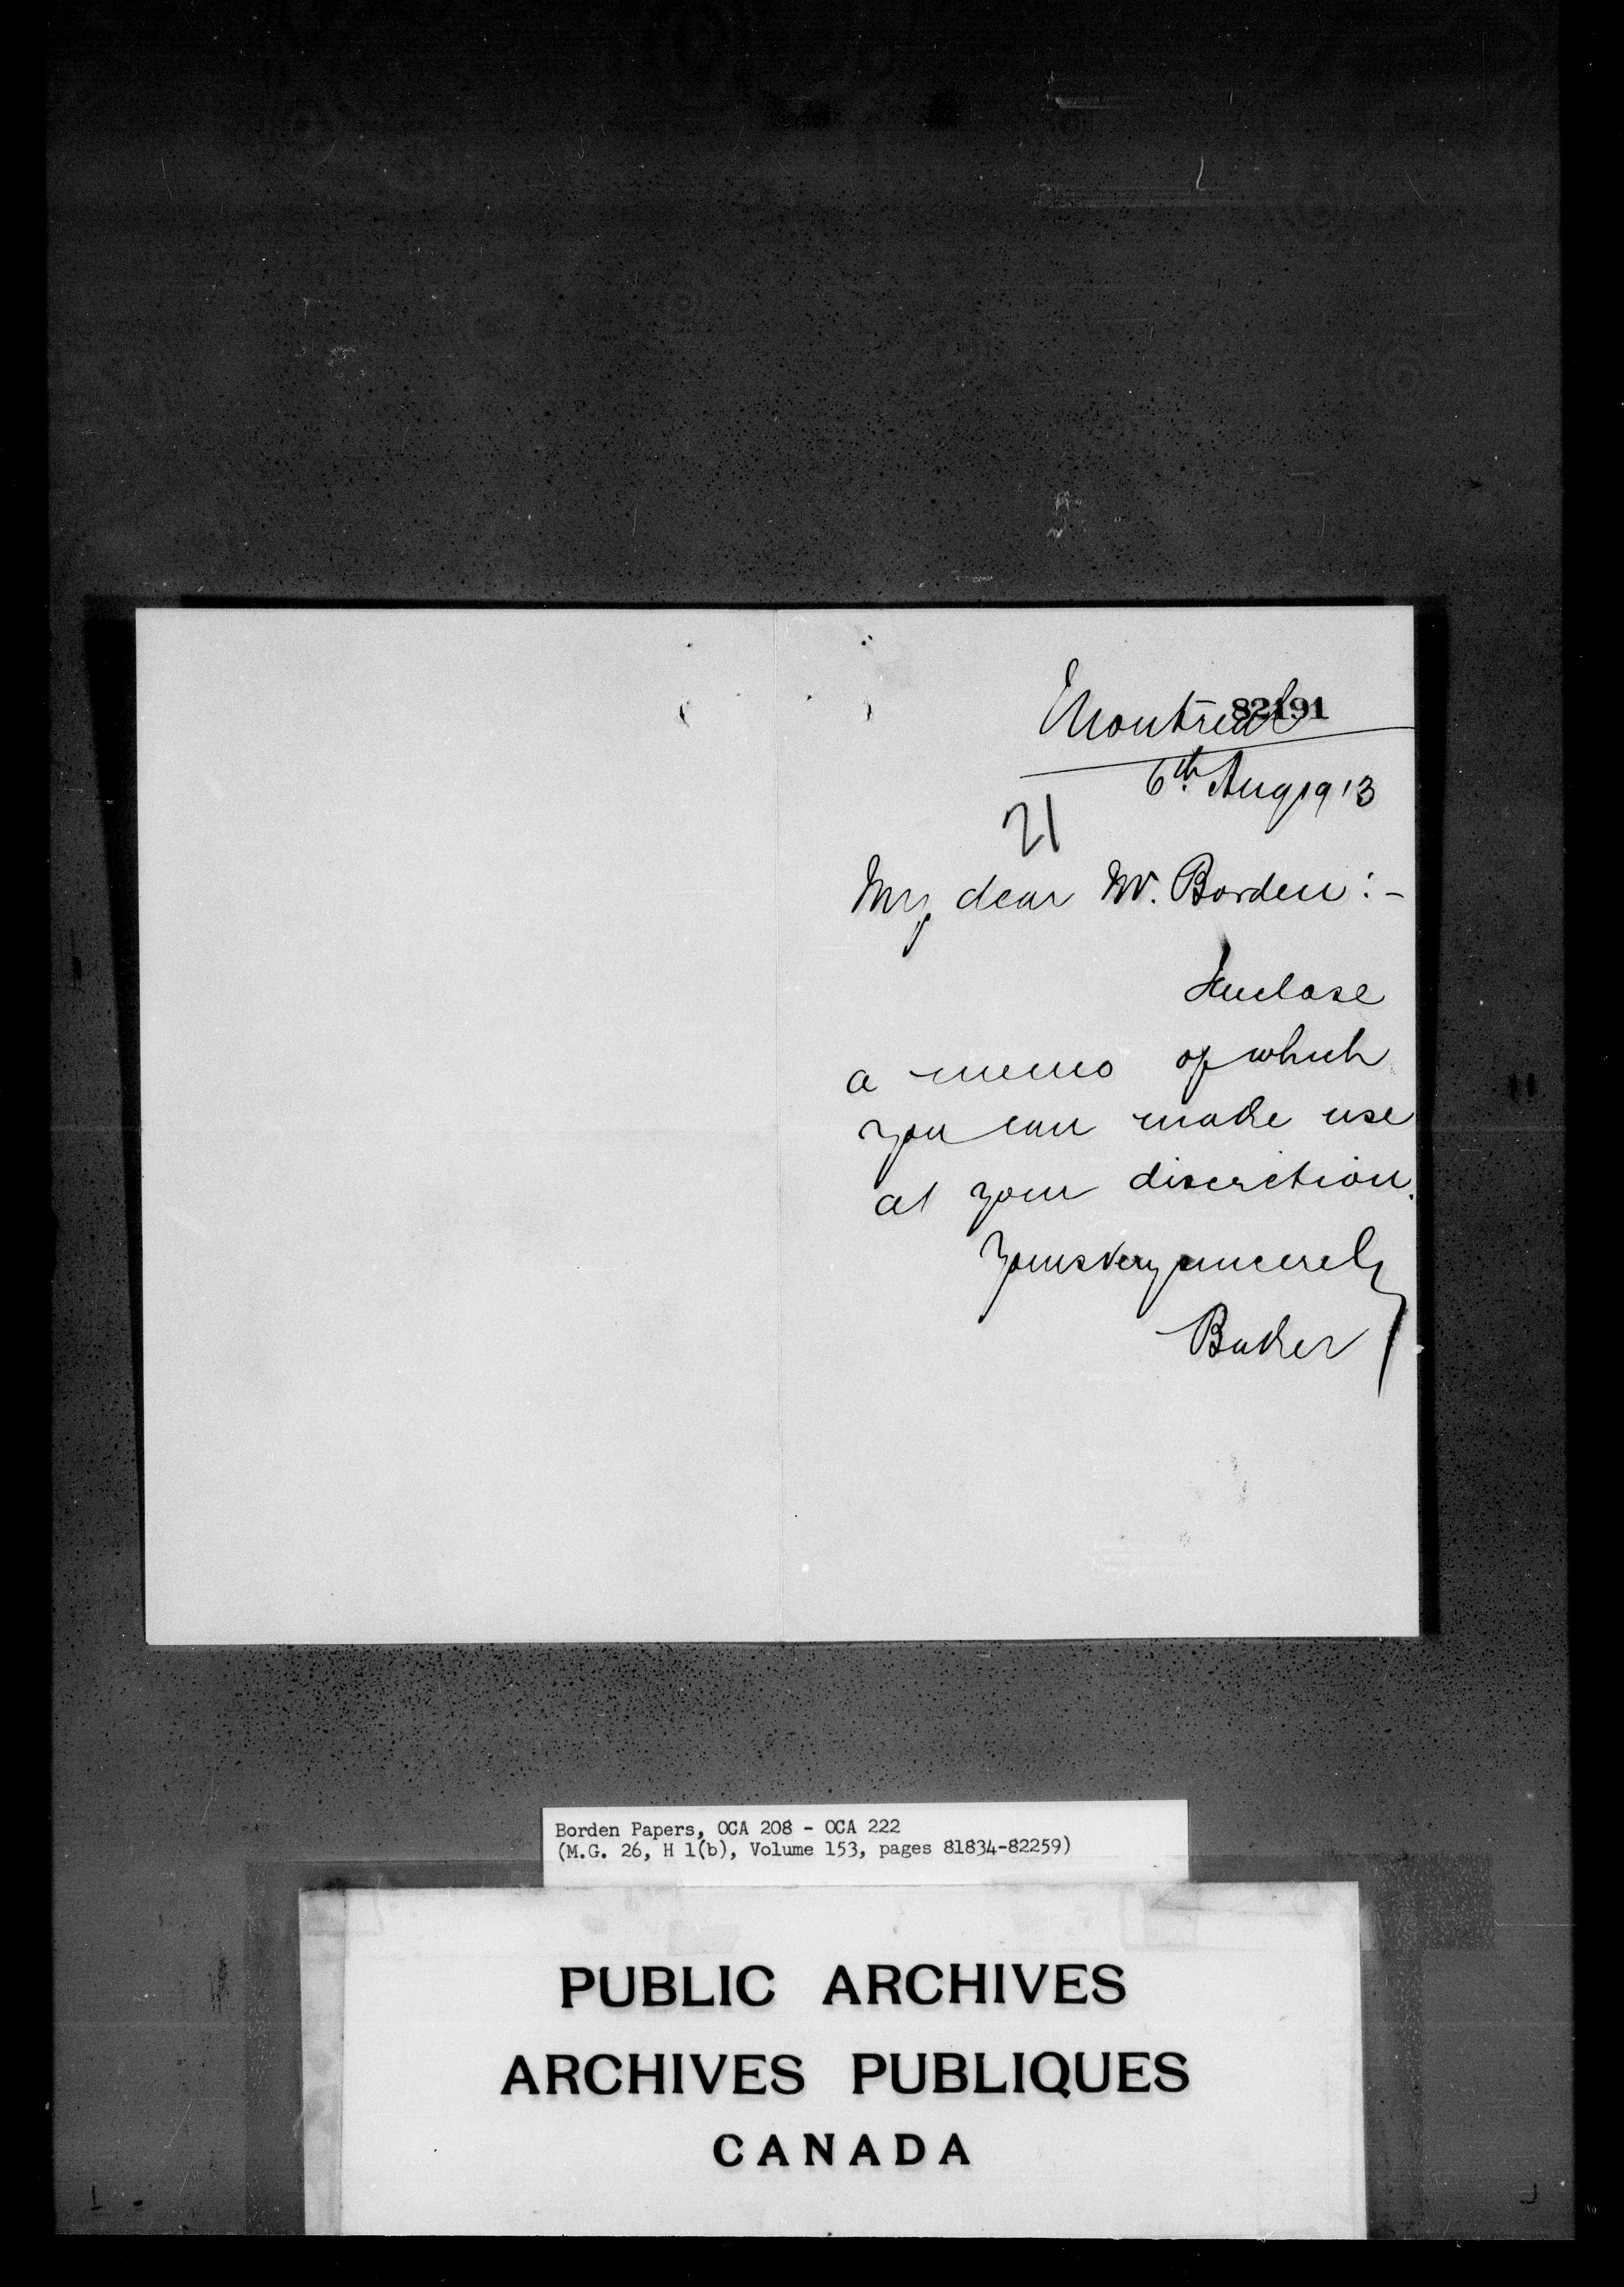 82191
Montreal
6th. Aug 1913
21
My dear Mr. Borden :-
I enclose
a memo of which
you can make use
at your discretion.
Yours very sincerely
Baker
Borden Papers, OCA 208 - OCA 222
(M.G. 26, H 1(b), Volume 153, pages 81834-82259)
PUBLIC ARCHIVES
ARCHIVES PUBLIQUES
CANADA